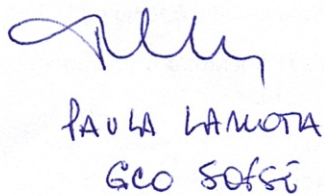 PAULA LAMOTA
GCO SOFSE